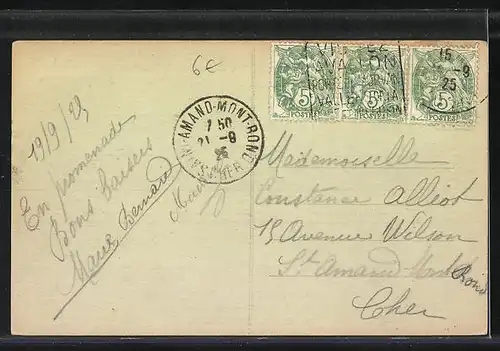 6€
19/9/25
En promenade
Bons baisers
Bernard
ST-AMAND-MONT-ROND
7 50
21 - 9
25
CHER
AVALLON
15
- 9
25
5c
5c
5c
POSTES
POSTES
POSTES
Mademoiselle
Constance Alliot
15 Avenue Wilson
St Amand Mont
Rond
Cher